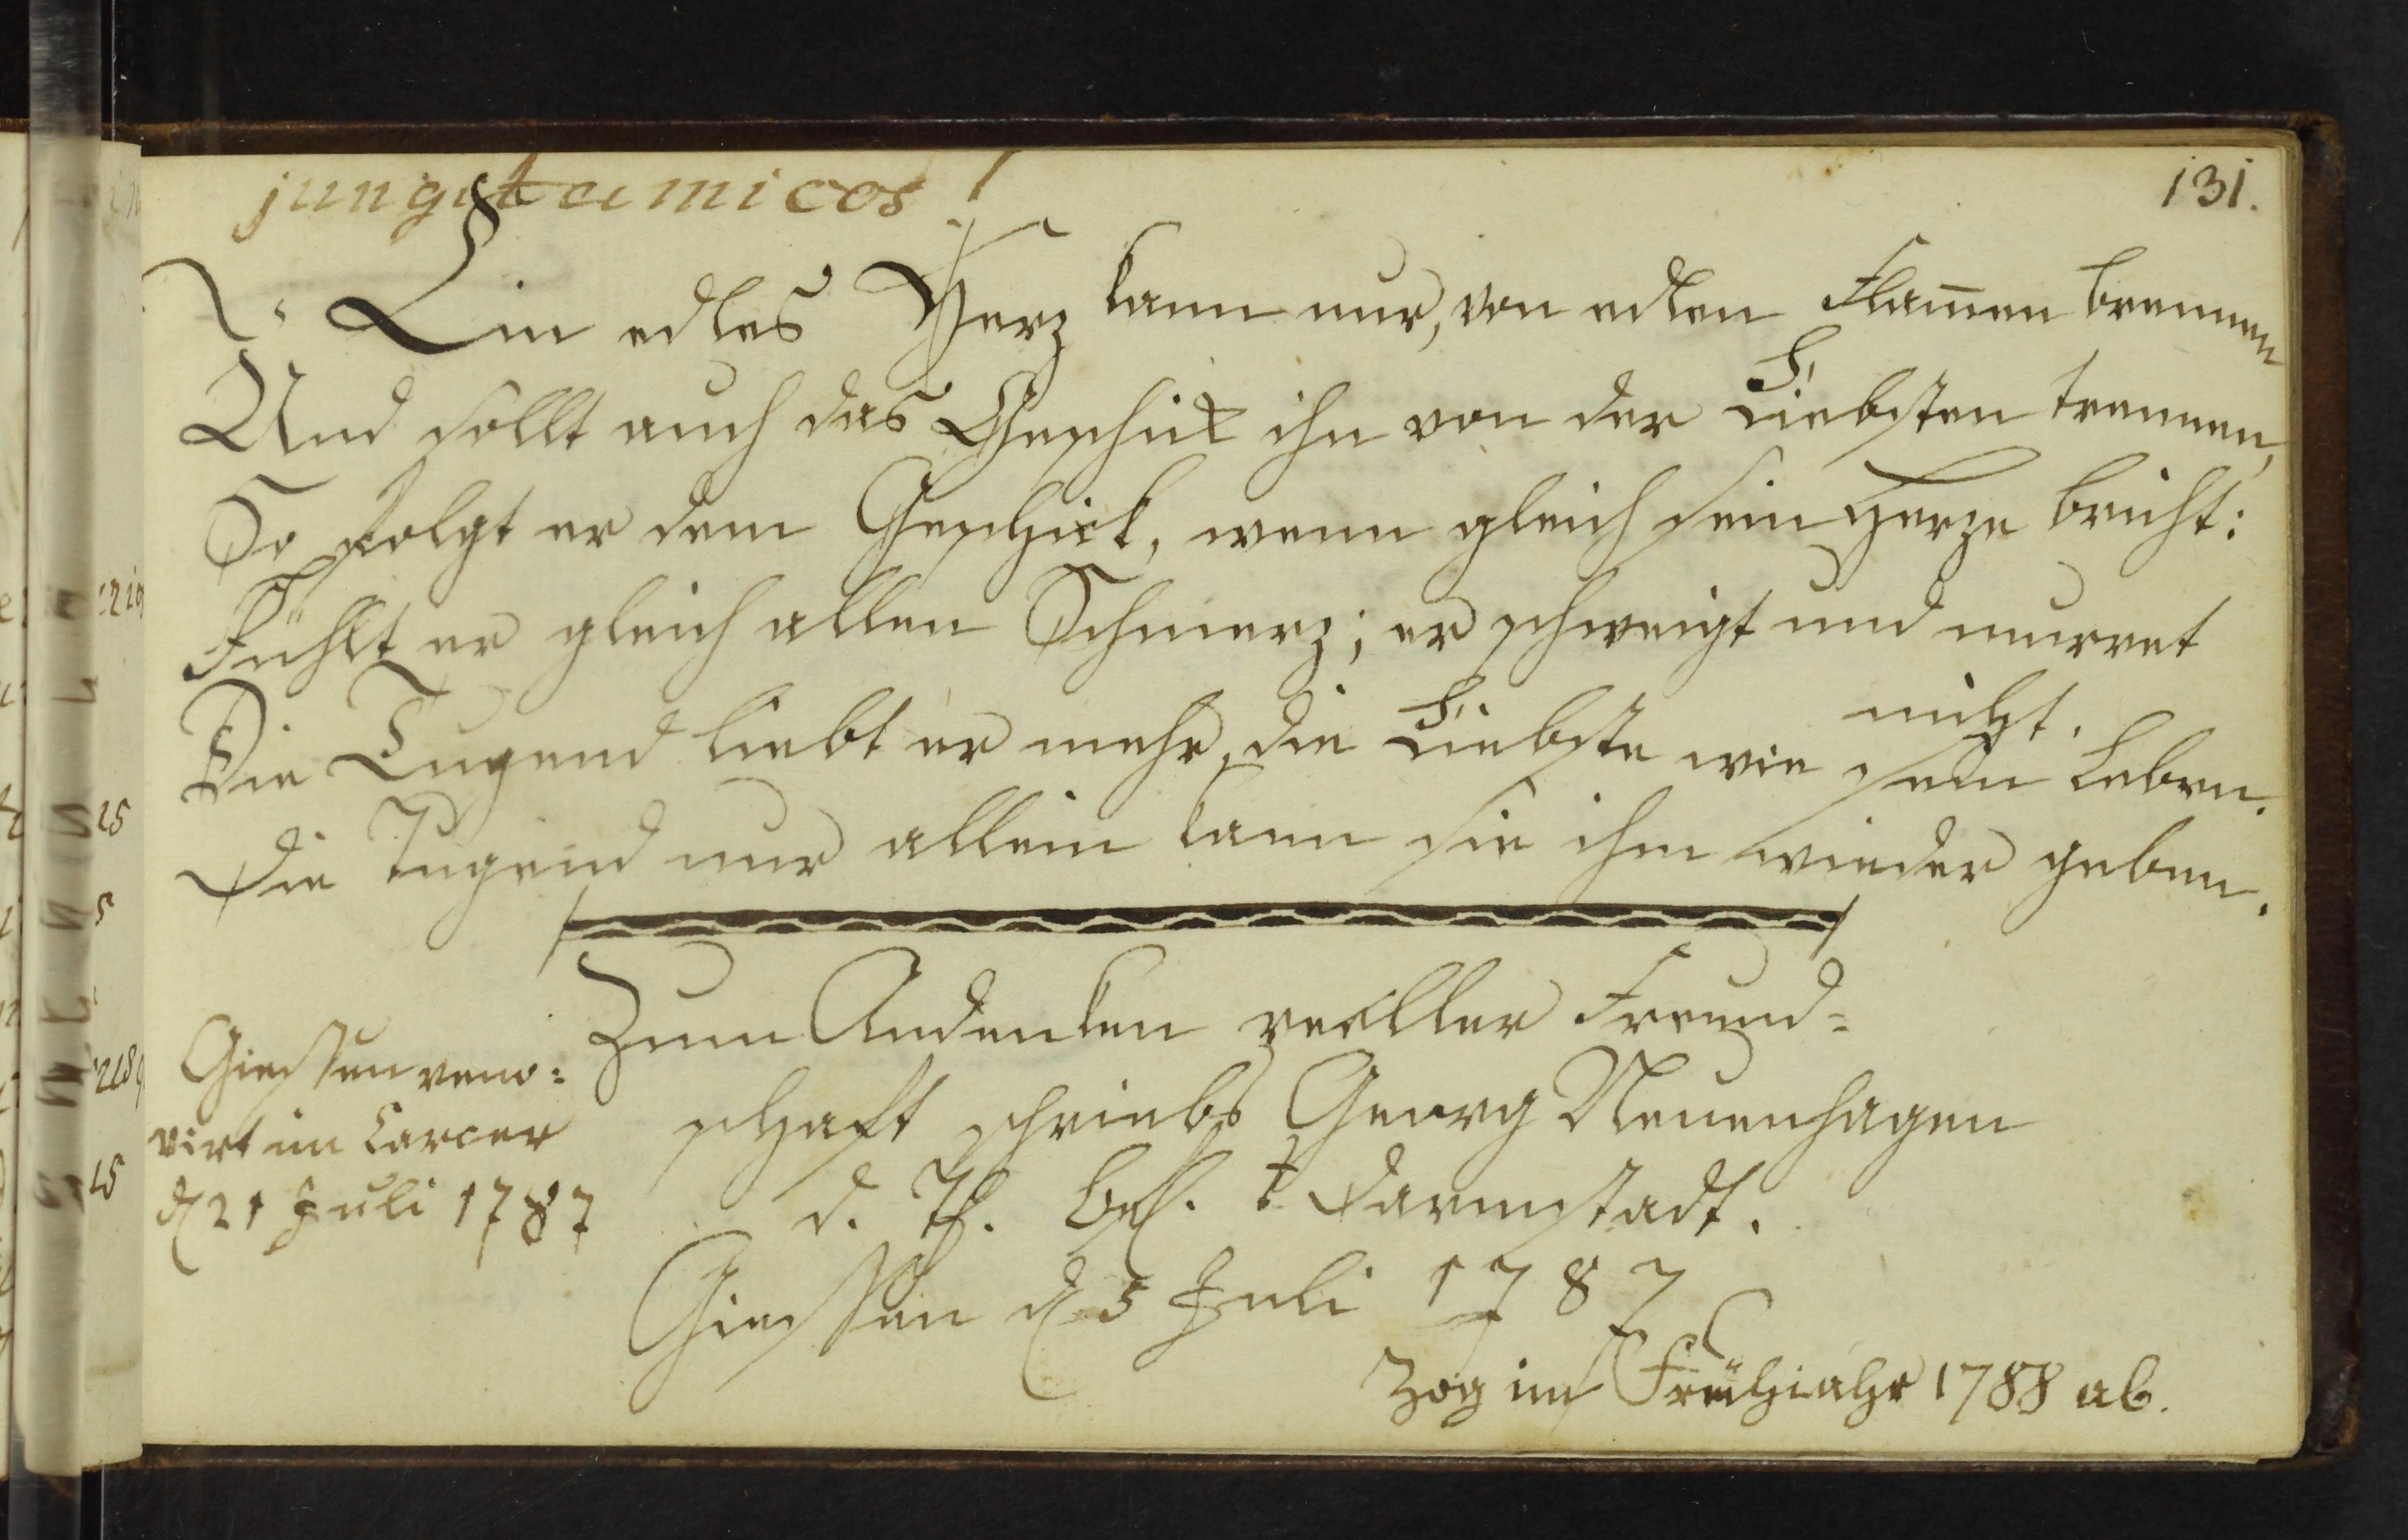 jungit amicos!
131.
Ein edles Herz kann nur, von edlen Flam̄en brennen
Und sollt auch das Geschick ihn von der Liebsten trennen,
So folgt er dem Geschick, wenn gleich sein Herze bricht:
Fühlt er gleich allen Schmerz; er schweigt und murret
nicht.
Die Tugend liebt er mehr, die Liebste wie sein Leben.
Die Tugend nur allein kann sie ihm wieder geben.
Zum Andenken reeller Freund=
schaft schriebs Georg Neuenhagen
d. Th. Bfl. a Darmstadt.
Giessen d 5 Juli 1787
Giessen reno=
virt im Carcer
d 21 Juli 1787
Zog im Frühjahr 1788 ab.